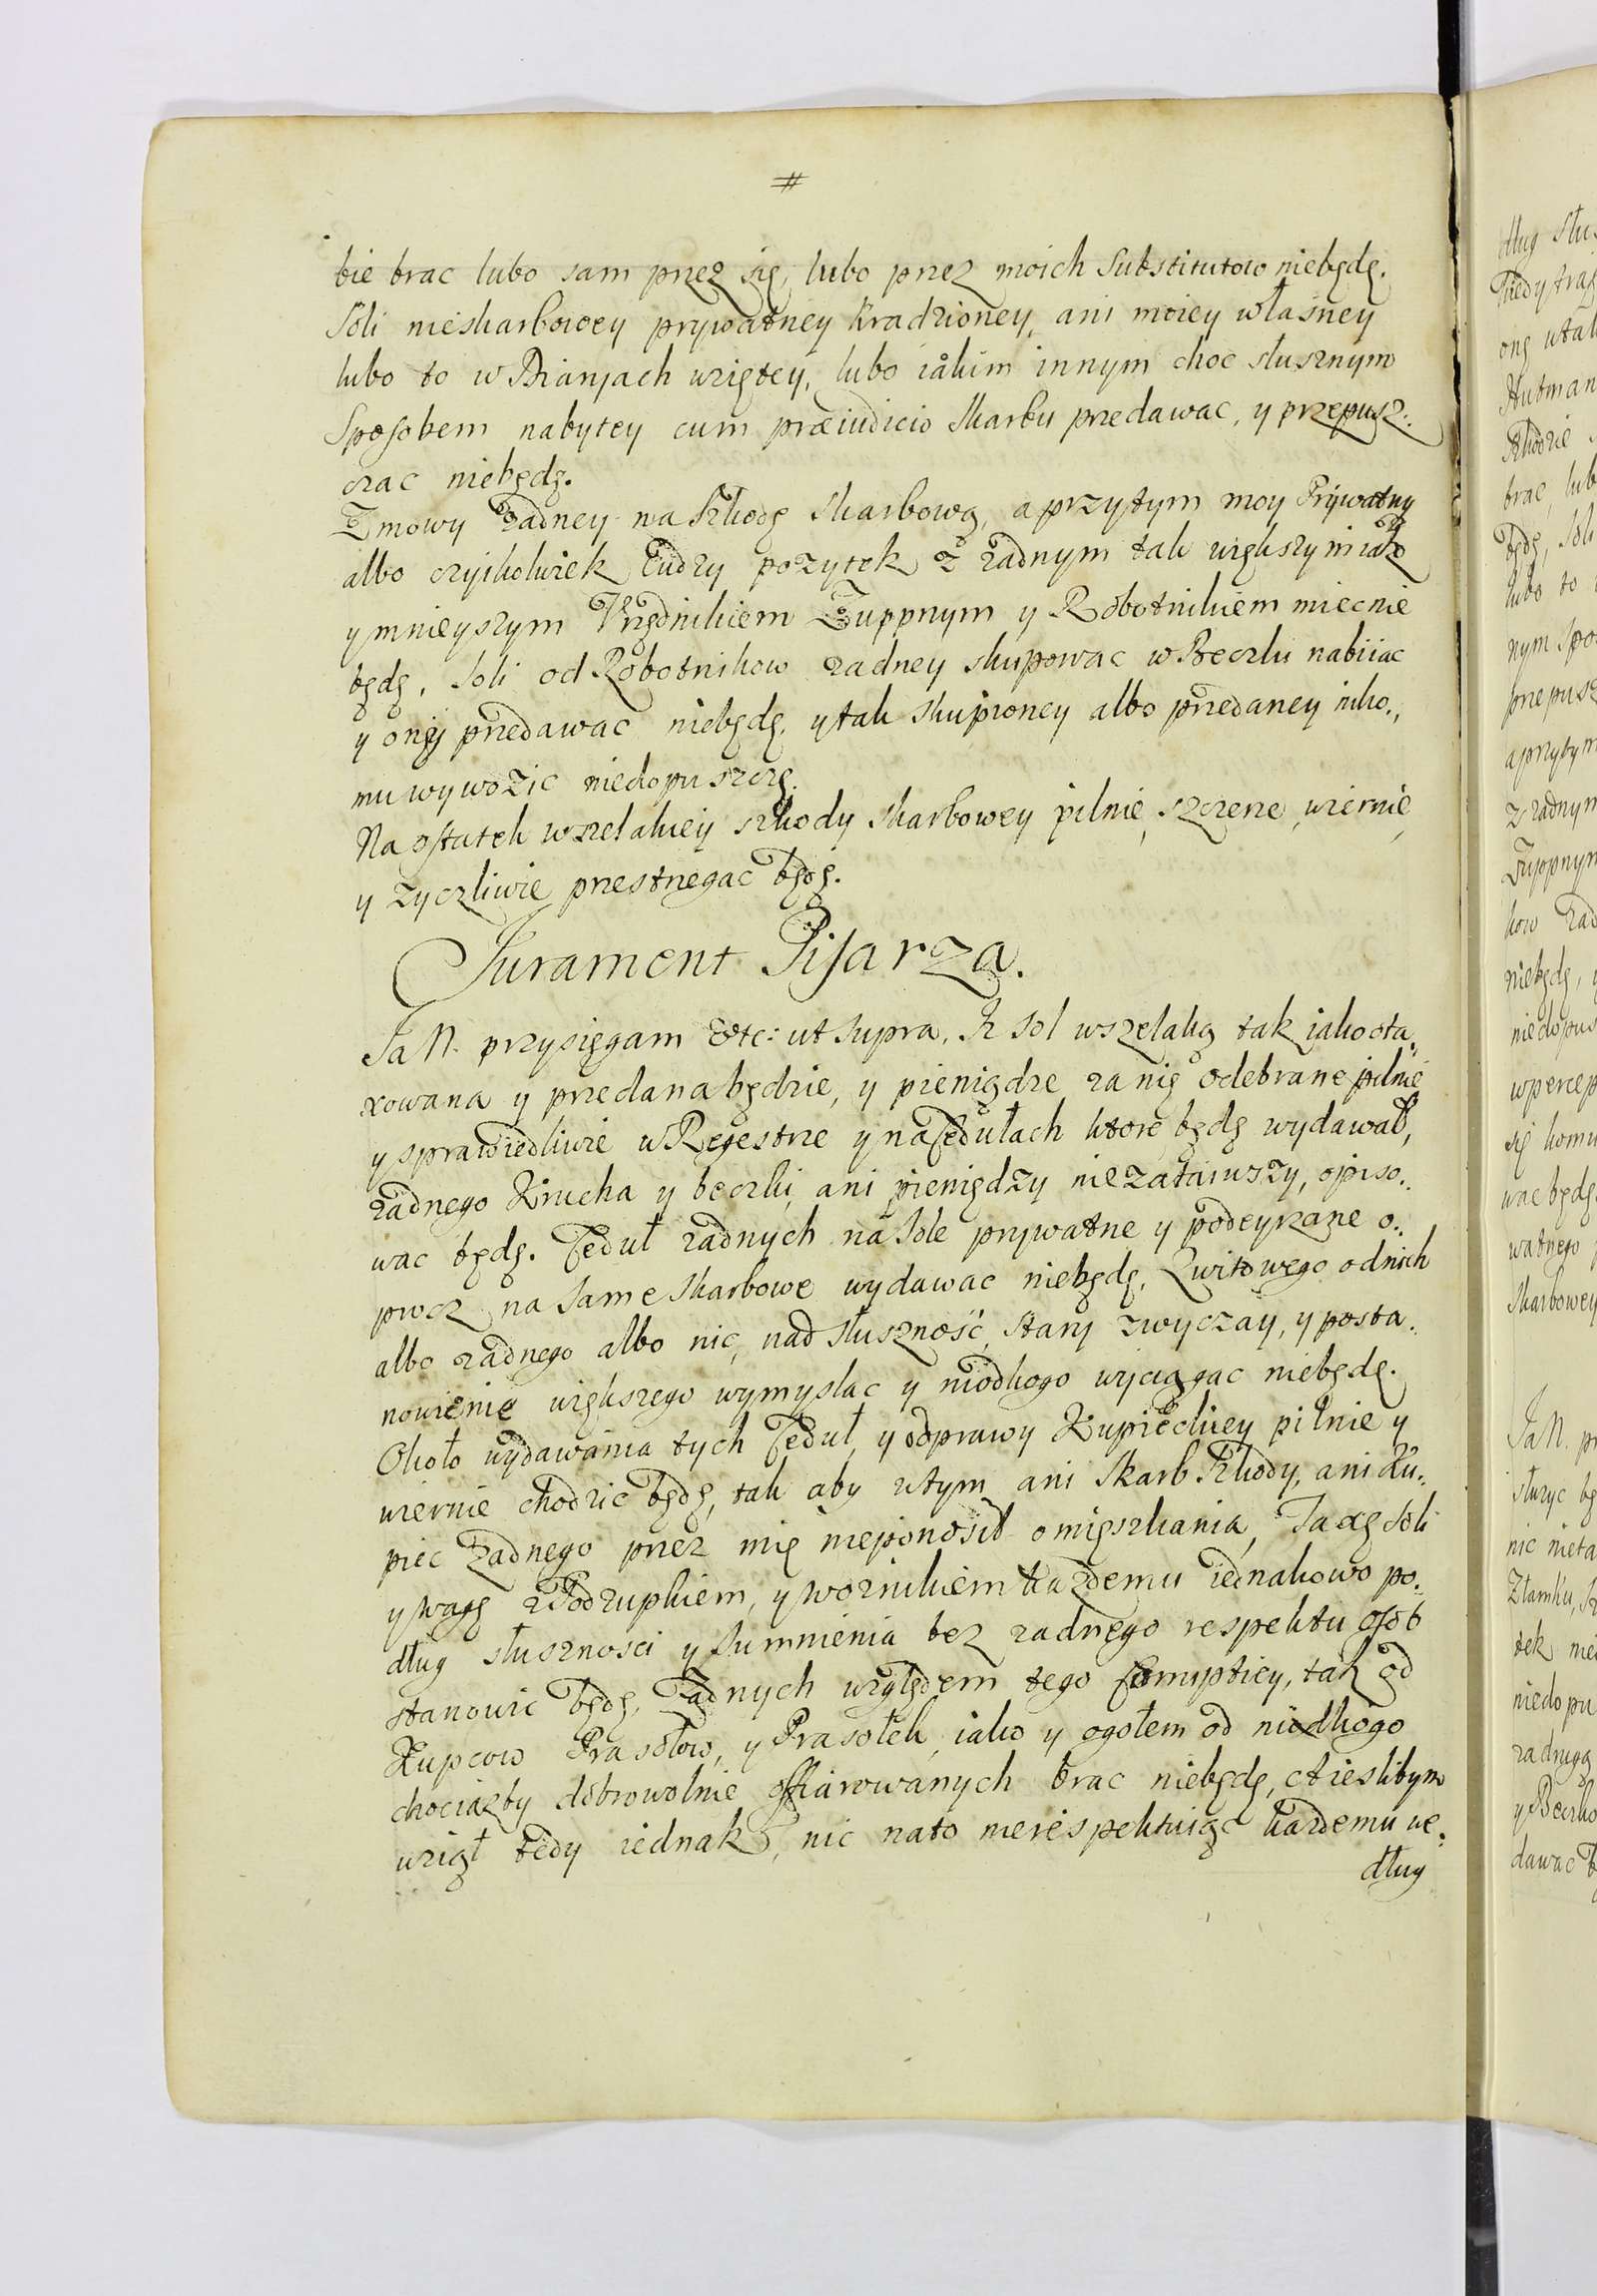 #
bie brac lubo sam przez się, lubo przez moich Substitutow niebędę.
Soli nieskarbowey prywatney kradzioney, ani moiey własney
lubo to w Bianjach wziętey, lubo iakim innym choc słusznym
Sposobem nabytey cum præiudicio skarbu przedawac, y przepusz:
czac niebędę.
Zmowy żadney na szkodę skarbową, a przytym moy Prywatny
albo czyikolwiek Cudzy pożytek z żadnym tak większym iako
y mnieyszym Urzędnikiem Zuppnym y Robotnikiem miec nie
będę, soli od Robotnikow żadney skupowac w Beczki nabiiac
y oney przedawac niebędę, y tak skupioney albo przedaney niko.,
mu wywozic niedopuszczę.
Na ostatek wszelakiey szkody skarbowey pilnie, szczerze, wiernie,
y życzliwie przestrzegac będę.
Jurament Pisarza.
Ja N. przysięgam Etc: ut supra. Iż sol wszelaką tak iako ota..
xowana y przedana będzie, y pieniądze za nię odebrane pilnie
y sprawiedliwie w Regestrze y na Cedułach ktore będę wydawał,
żadnego Krucha y beczki, ani pieniędzy niezataiwszy, opiso..
wac będę. Ceduł żadnych na sole prywatne y podeyrzane o..
procz na same skarbowe wydawac niebędę, Kwitowego od nich
albo żadnego albo nic, nad słuszność, stary zwyczay, y posta..
nowienie większego wymyslac y niodkogo wyciągac niebędę.
Około wydawania tych Ceduł, y odprawy Kupieckiey pilnie y
wiernie chodzic będę, tak aby w tym ani Skarb szkody, ani Ku..
piec żadnego przez mię nieponosił omieszkania, Taxę Soli
y wagę z Podżupkiem, y woznikiem każdemu iednakowo po..
dług słusznosci y sumnienia bez żadnego respektu osob
stanowic będę, żadnych względem tego Corrupciey, tak od
Kupcow Prasołow, y Prasołek, iako y ogołem od niodkogo
chociażby dobrowolnie offiarowanych brac niebędę, a ieslibym
wziął tedy iednak, nic na to nierespektuiąc każdemu we..
dług